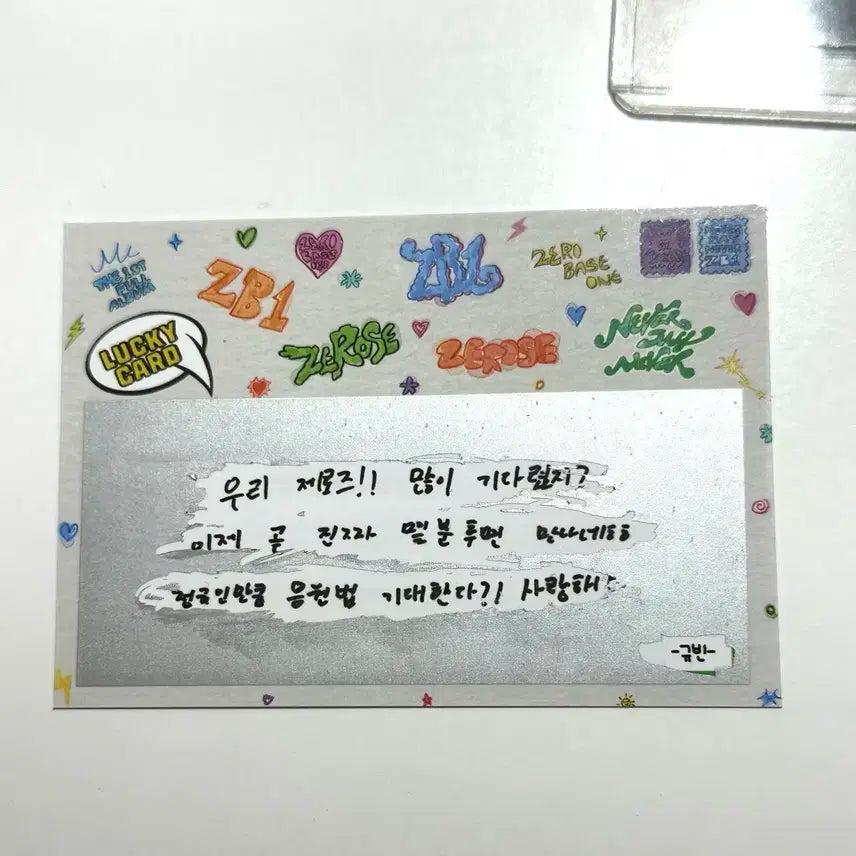 THE 1ST
FULL
ALBUM
ZB1
ZERO
BASE
ONE
ZB1
ZERO
BASE
ONE
ZB1
LUCKY
CARD
ZEROSE
ZEROSE
NEVER
SAY
NEVER
우리 제로즈!! 많이 기다렸지?
이제 곧 진짜라 몇분 후면 만나네ㅎㅎ
첫국인만큼 응원법 기대한다?! 사랑해
-규빈-